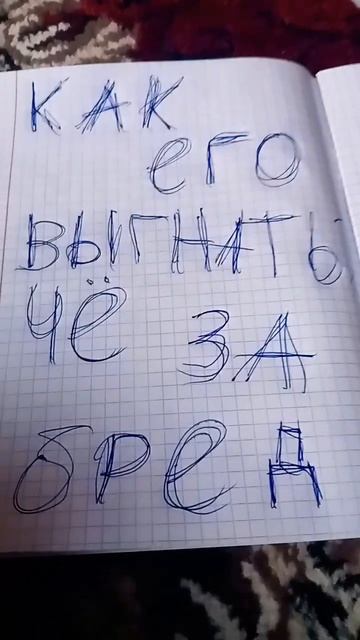 КАК
его
ВЫГНАТЬ
ЧЁ ЗА
бРеД